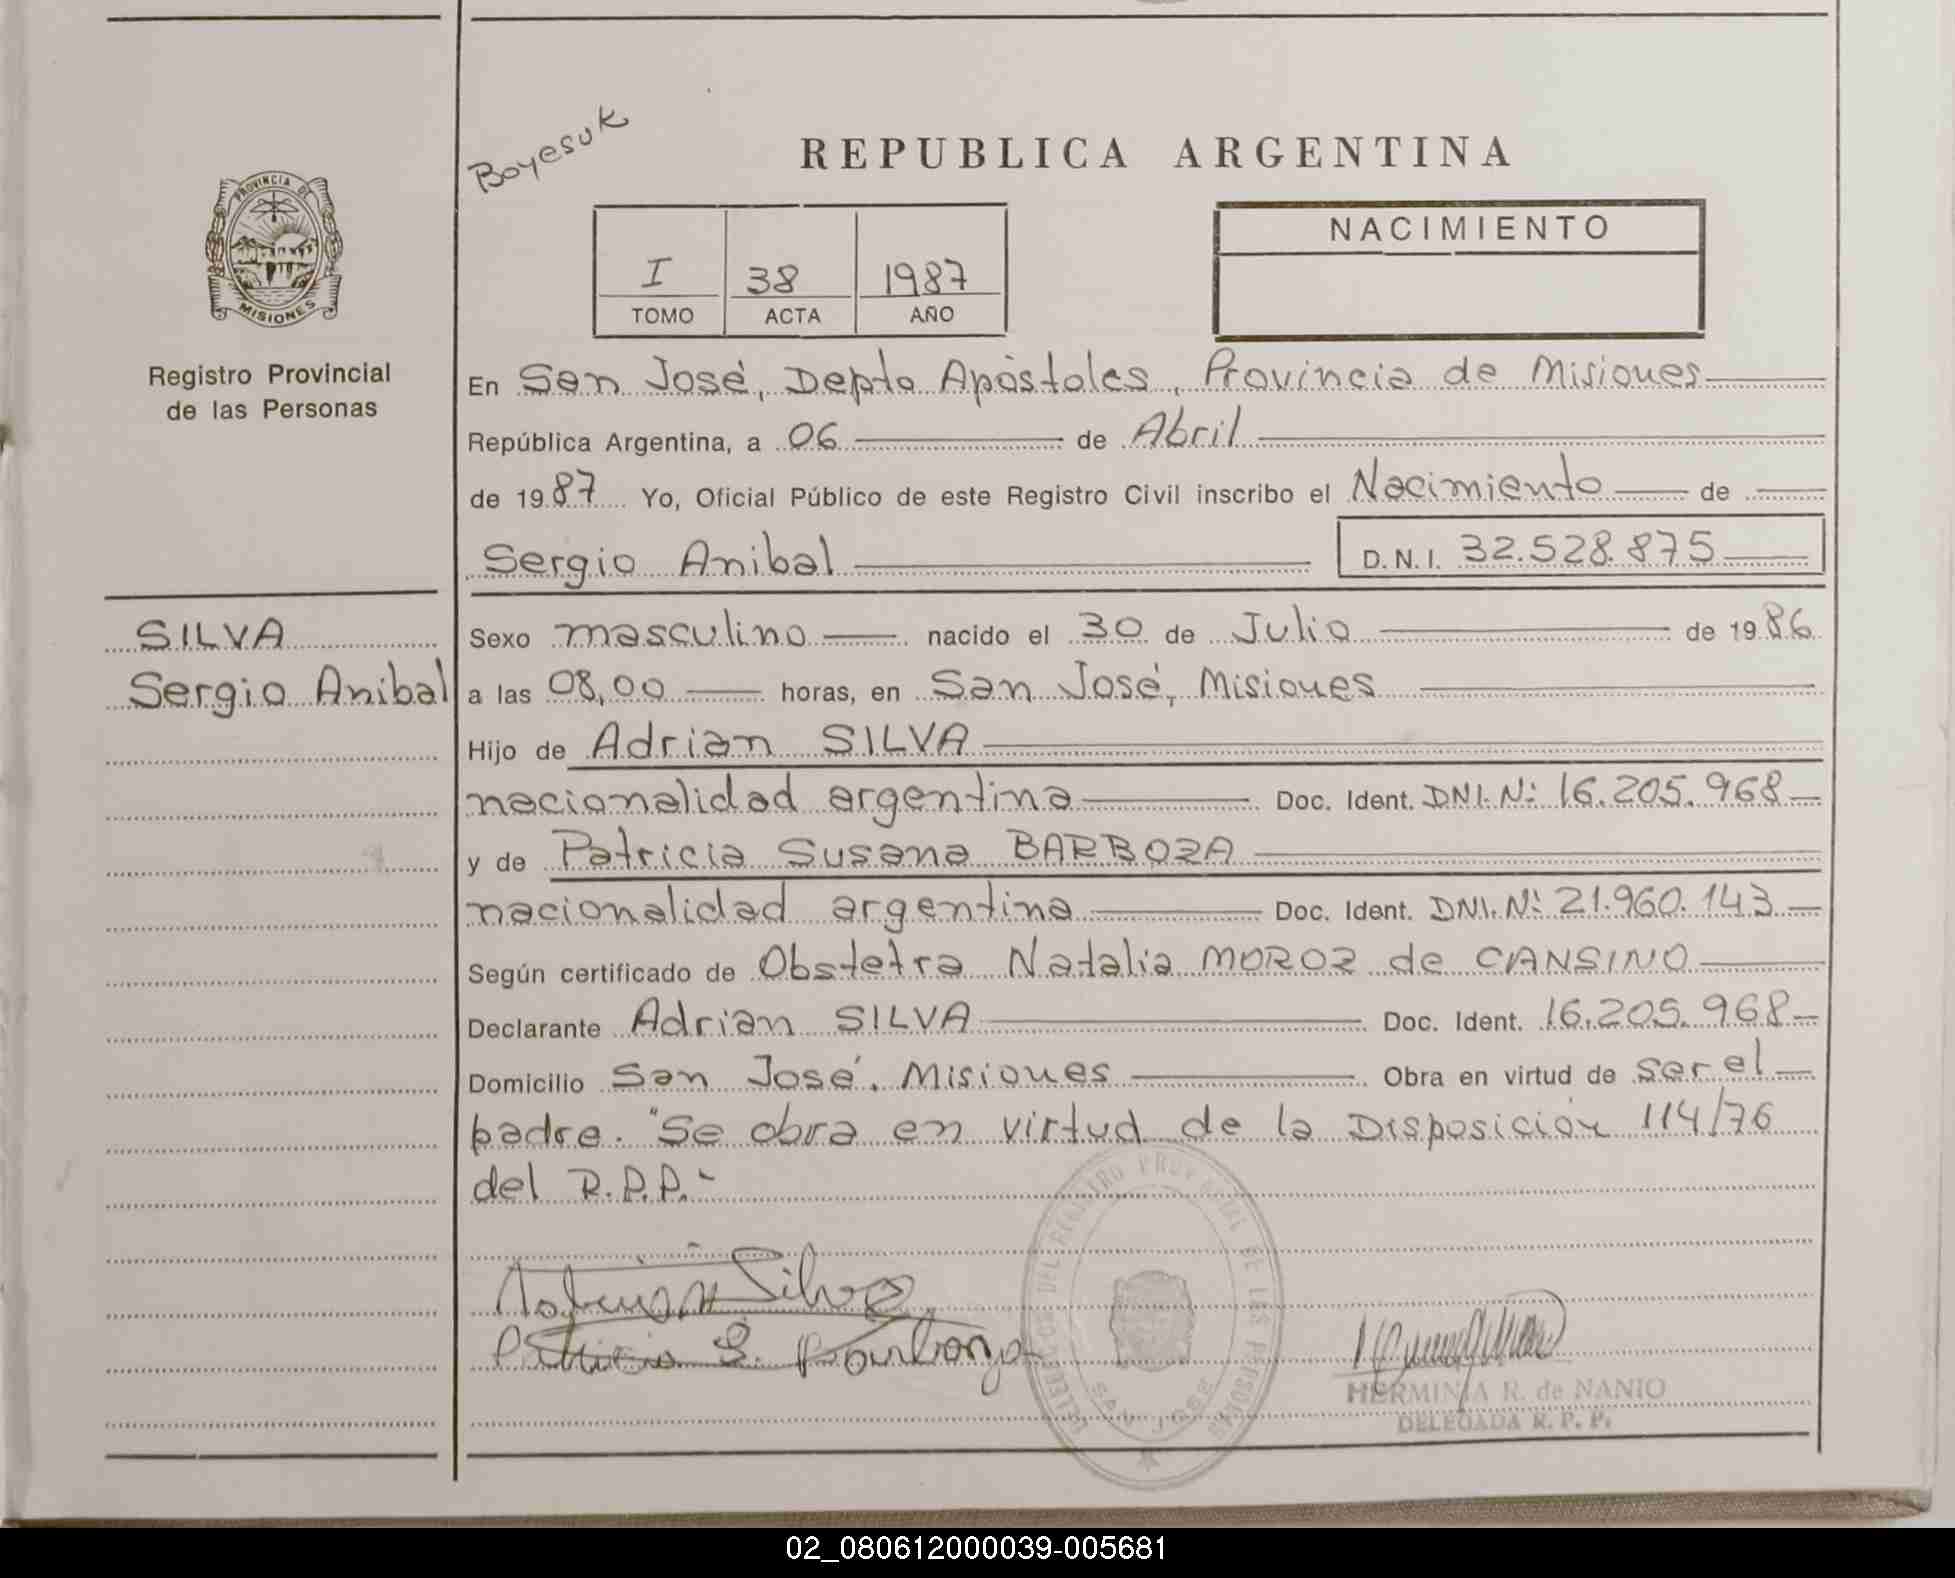 Boyesuk
REPUBLICA ARGENTINA
PROVINCIA DE
MISIONES
Registro Provincial
de las Personas
I 38 1987
TOMO ACTA AÑO
NACIMIENTO
En San José, Depto Apóstoles, Provincia de Misiones
República Argentina, a 06 de Abril
de 1987 Yo, Oficial Público de este Registro Civil inscribo el Nacimiento de
Sergio Anibal D.N.I. 32.528.875
SILVA
Sergio Anibal
Sexo masculino nacido el 30 de Julio de 1986
a las 08,00 horas, en San José, Misiones
Hijo de Adrian SILVA
nacionalidad argentina Doc. Ident. DNI. Nº 16.205.968
y de Patricia Susana BARBOZA
nacionalidad argentina Doc. Ident. DNI. Nº 21.960.143
Según certificado de Obstetra Natalia MOROZ de CANSINO
Declarante Adrian SILVA Doc. Ident. 16.205.968
Domicilio San José. Misiones Obra en virtud de ser el
padre. "Se obra en virtud de la Disposición 114/76
del R.P.P.-
Adrian Silva
Patricia S. Barboza
DEL REGISTRO PROVINCIAL DE LAS PERSONAS
SAN JOSE
HERMINIA R. de NANIO
DELEGADA R. P. P.
02_080612000039-005681